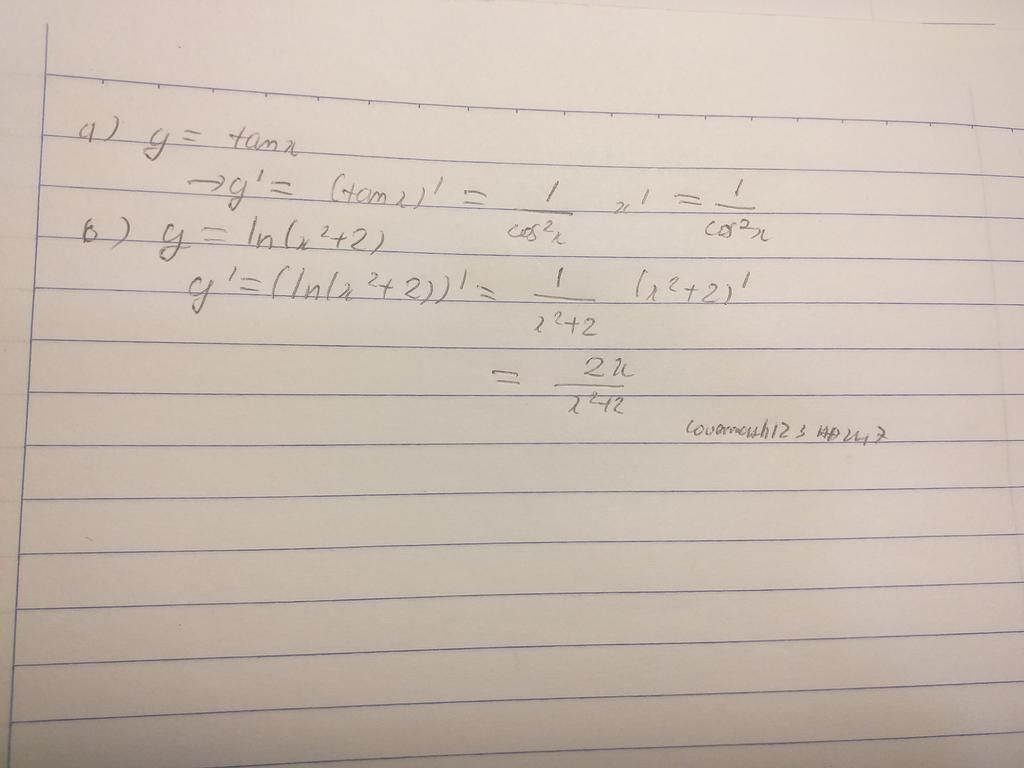 a) y = tanx
→ y' = (tanx)' = 1/cos²x x' = 1/cos²x
b) y = ln(x²+2)
y' = (ln(x²+2))' = 1/x²+2 (x²+2)'
= 2x/x²+2